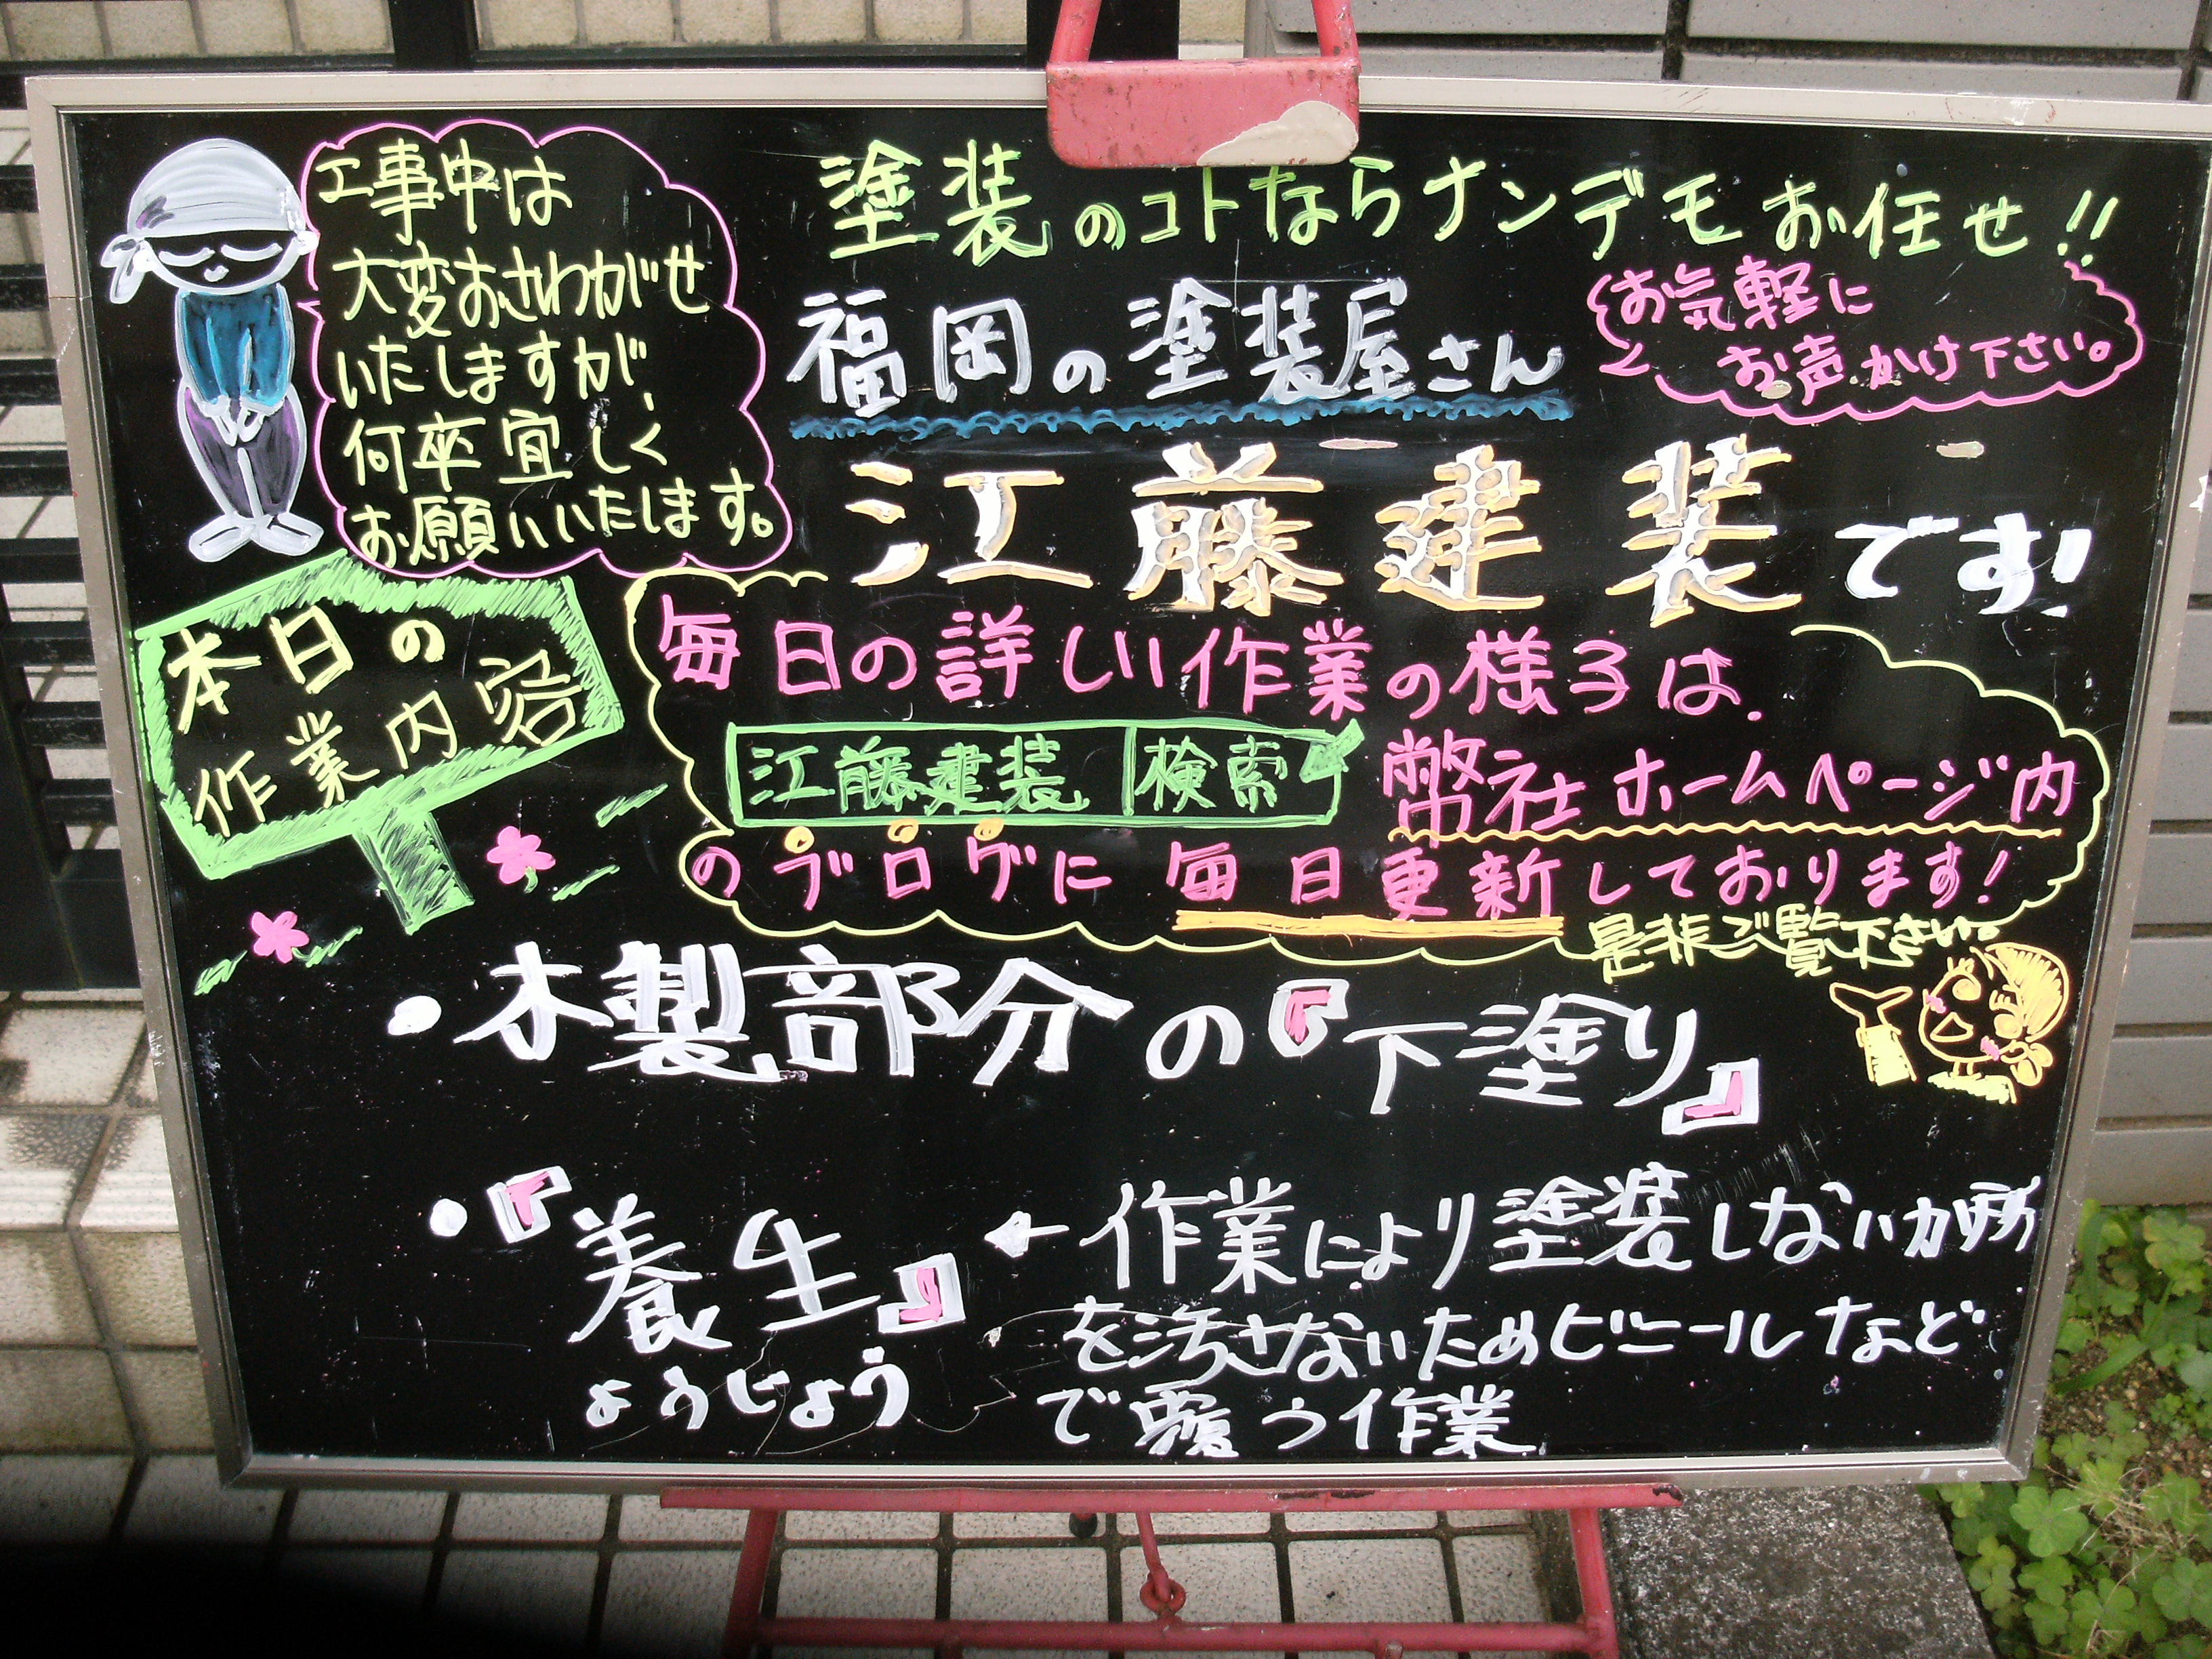 工事中は
大変おさわがせ
いたしますが、
何卒宜しく
お願いいたします。
塗装のコトならナンデモお任せ!!
福岡の塗装屋さん
お気軽に
お声かけ下さい。
江藤建装です!
本日の
作業内容
毎日の詳しい作業の様子は、
江藤建装 検索 弊社ホームページ内
のブログに毎日更新しております!
是非ご覧下さい。
・木製部分の『下塗り』
・『養生』←作業により塗装しないか所
ようじょう
を汚さないためビニールなど
で覆う作業